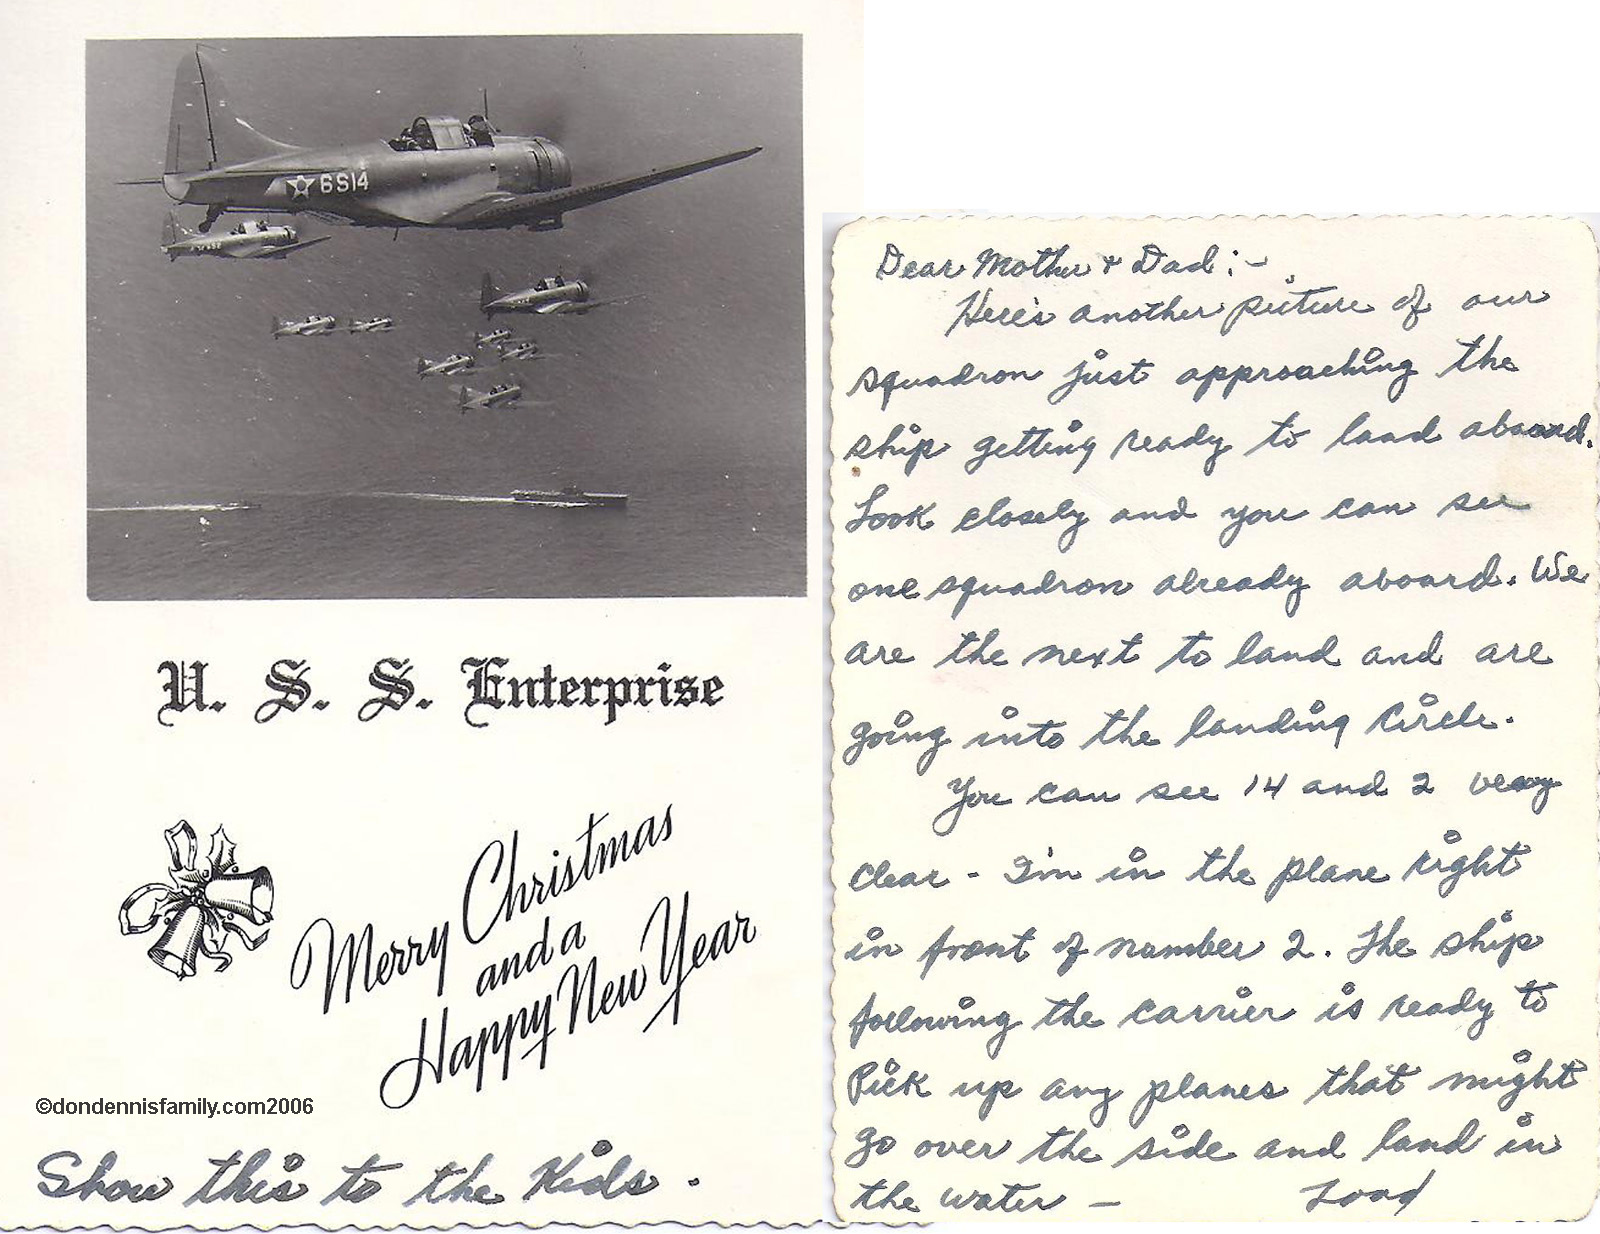 6S14
U. S. S. Enterprise
Merry Christmas
and a
Happy New Year
©dondennisfamily.com2006
Show this to the Kids.
Dear Mother + Dad:-
Here's another picture of our
squadron just approaching the
ship getting ready to land aboard.
Look closely and you can see
one squadron already aboard. We
are the next to land and are
going into the landing circle.
You can see 14 and 2 very
clear - I'm in the plane right
in front of number 2. The ship
following the carrier is ready to
pick up any planes that might
go over the side and land in
the water -